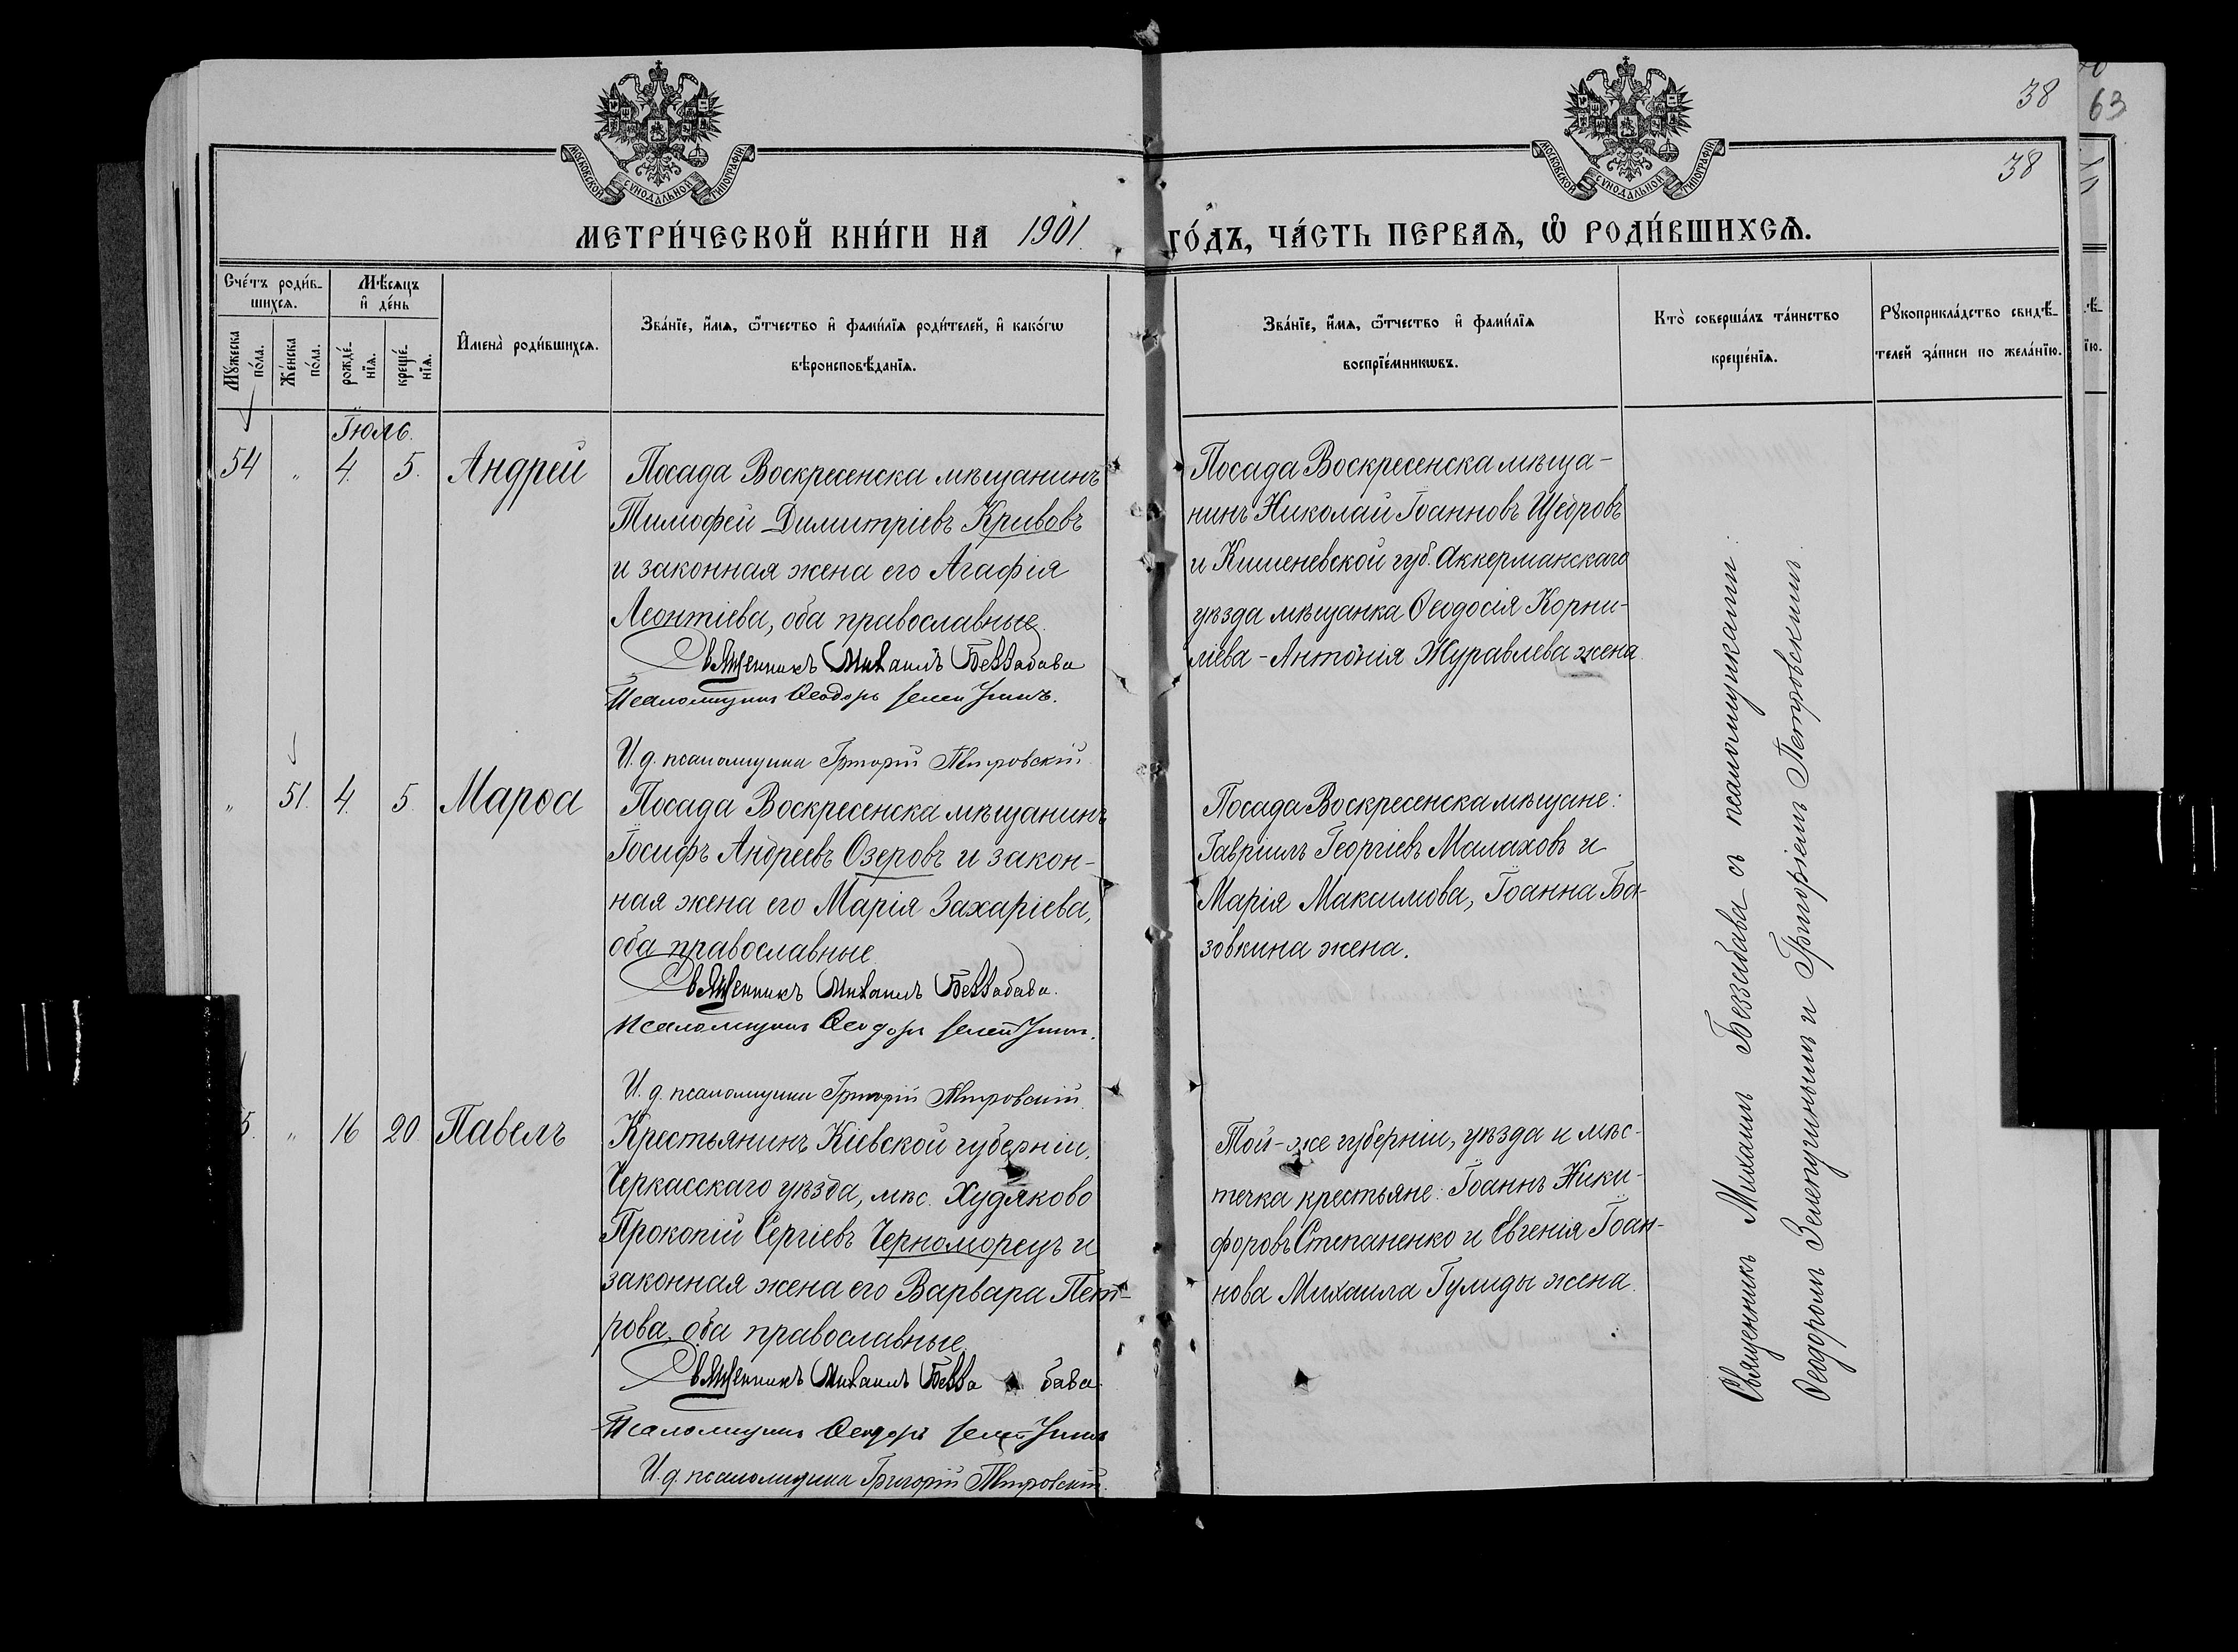 38
63
МОСКОВСКОЙ СѴНОДАЛЬНОЙ ТИПОГРАФІИ
МОСКОВСКОЙ СѴНОДАЛЬНОЙ ТИПОГРАФІИ
38
МЕТРИ́ЧЕСКОЙ КНИ́ГИ НА 1901 ГО́ДЪ, ЧА́СТЬ ПЕРВАѦ, Ѡ҆ РОДИ́ВШИХСѦ.
Сче́тъ роди́в-
шихсѧ.
Мꙋ́жеска
по́ла.
Же́нска
по́ла.
Мѣ́сѧцъ
и҆ де́нь
рожде́-
нїѧ.
креще́-
нїѧ.
И҆мена̀ роди́вшихсѧ.
Зва́нїе, и҆́мѧ, ѻ҆́тчество и҆ фами́лїѧ роди́телей, и҆ како́гѡ
вѣроисповѣ́данїѧ.
Зва́нїе, и҆́мѧ, ѻ҆́тчество и҆ фами́лїѧ
воспрїе́мникѡвъ.
Кто̀ соверша́лъ та́инство
креще́нїѧ.
Рꙋкоприкла́дство свидѣ́-
телей за́писи по жела́нїю.
Іюль.
54 " 4. 5. Андрей
Посада Воскресенска мѣщанинъ
Тимофей Димитріевъ Кривовъ
и законная жена его Агафія
Леонтіева, оба православные.
Священникъ Михаилъ Беззабава
Псаломщикъ Ѳеодоръ Зелепугинъ.
И. д. псаломщика Григорій Петровскій
Посада Воскресенска мѣща-
нинъ Николай Іоанновъ Щедровъ
и Кишеневской губ. Аккерманскаго
уѣзда мѣщанка Ѳеодосія Корни-
ліева - Антонія Журавлева жена
" 51. 4. 5. Марѳа
Посада Воскресенска мѣщанинъ
Іосифъ Андреевъ Озеровъ и закон-
ная жена его Марія Захаріева,
оба православные
Священникъ Михаилъ Беззабава.
Псаломщикъ Ѳеодоръ Зелепугинъ.
И. д. псаломщика Григорій Петровскій
Посада Воскресенска мѣщане:
Гавріилъ Георгіевъ Малаховъ и
Марія Максимова, Іоанна
зовкина жена.
5. " 16 20. Павелъ
Крестьянинъ Кіевской губерніи,
Черкасскаго уѣзда, мѣс. Худяково
Прокопій Сергіевъ Черноморецъ и
законная жена его Варвара Пет-
рова, оба православные.
Священникъ Михаилъ Безза бава.
Псаломщикъ Ѳеодоръ Зелепугинъ
И. д. псаломщика Григорій Петровскій.
Той-же губерніи, уѣзда и мѣс-
течка крестьяне: Іоаннъ Ники-
форовъ Степаненко и Евгенія Іоан-
нова Михаила Гулиды жена.
Священникъ Михаилъ Беззабава съ псаломщиками:
Ѳеодоромъ Зелепугинымъ и Григоріемъ Петровскимъ.